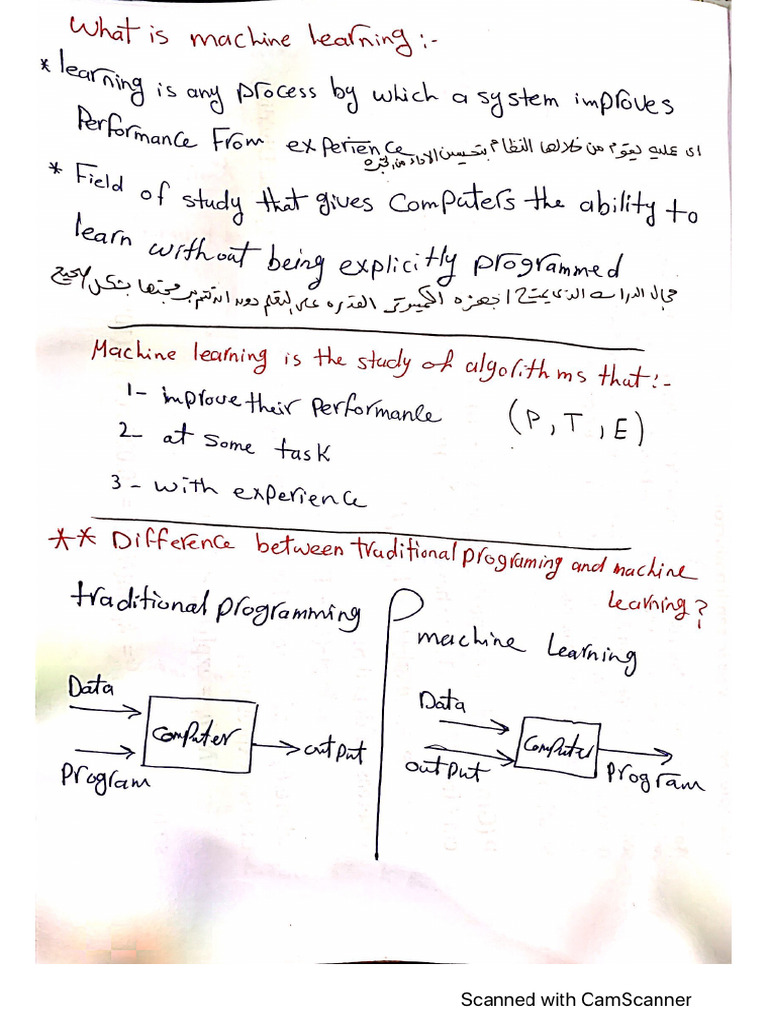 What is machine learning:-
* learning is any process by which a system improves
Performance From experience اى عليه يقوم من خلالها النظام بتحسين الاداء من
* Field of study that gives Computers the ability to
learn without being explicitly programmed
مجال الدراسه الذى اجهزه الكمبيوتر القدره على التعلم دون
Machine learning is the study of algorithms that:-
1- improve their Performance
2- at some task
3- with experience
(P, T, E)
** Difference between traditional programing and machine
learning?
traditional programming
Data
Program
Computer
output
machine Learning
Data
output
Computer
Program
Scanned with CamScanner